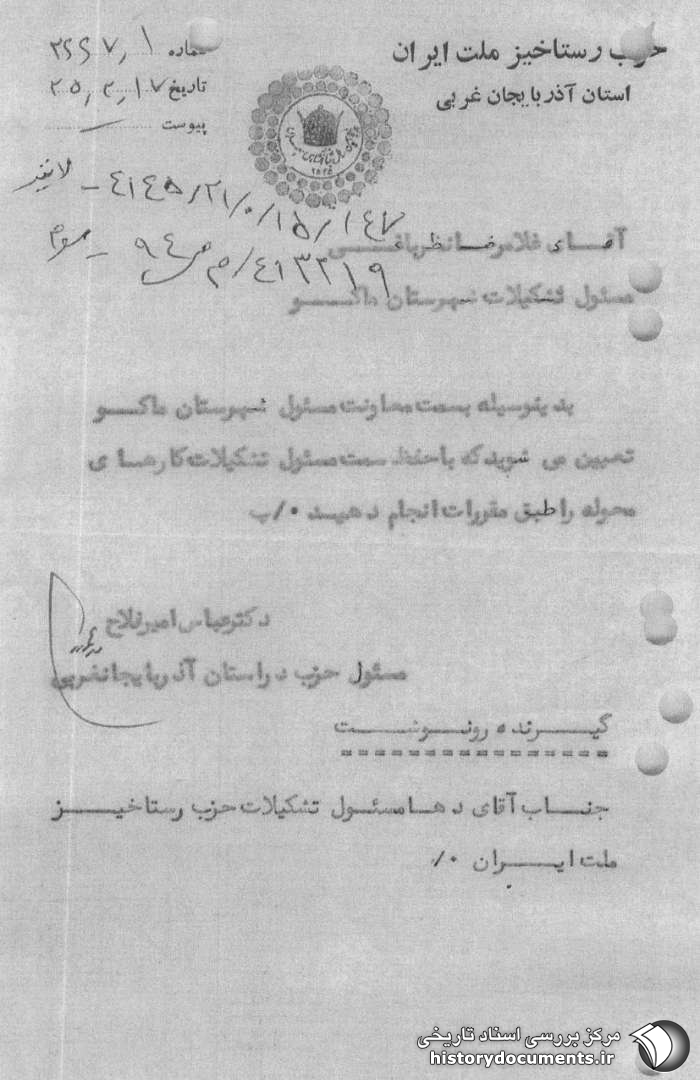 حزب رستاخیز ملت ایران
استان آذربایجان غربی
شماره
تاریخ ۲۵٫۲٫۱۷
پیوست
آقـای غلامرضا نظرباغـی
مسئول تشکیلات شهرستان ماکـو
بدینوسیله بسمت معاونت مسئول شهرستان ماکـو
تعیین می شوید که با حفظ سمت مسئول تشکیلات کارهـا ی
محوله را طبق مقررات انجام دهیـد ۰/ب
دکتر عباس امیرفلاح
مسئول حزب در استان آذربایجانغربی
گیـرنده رونـوشـت
================
جنـاب آقای دهـا مسئـول تشکیلات حزب رستاخیـز
ملت ایـران ۰/
مرکز بررسی اسناد تاریخی
historydocuments.ir